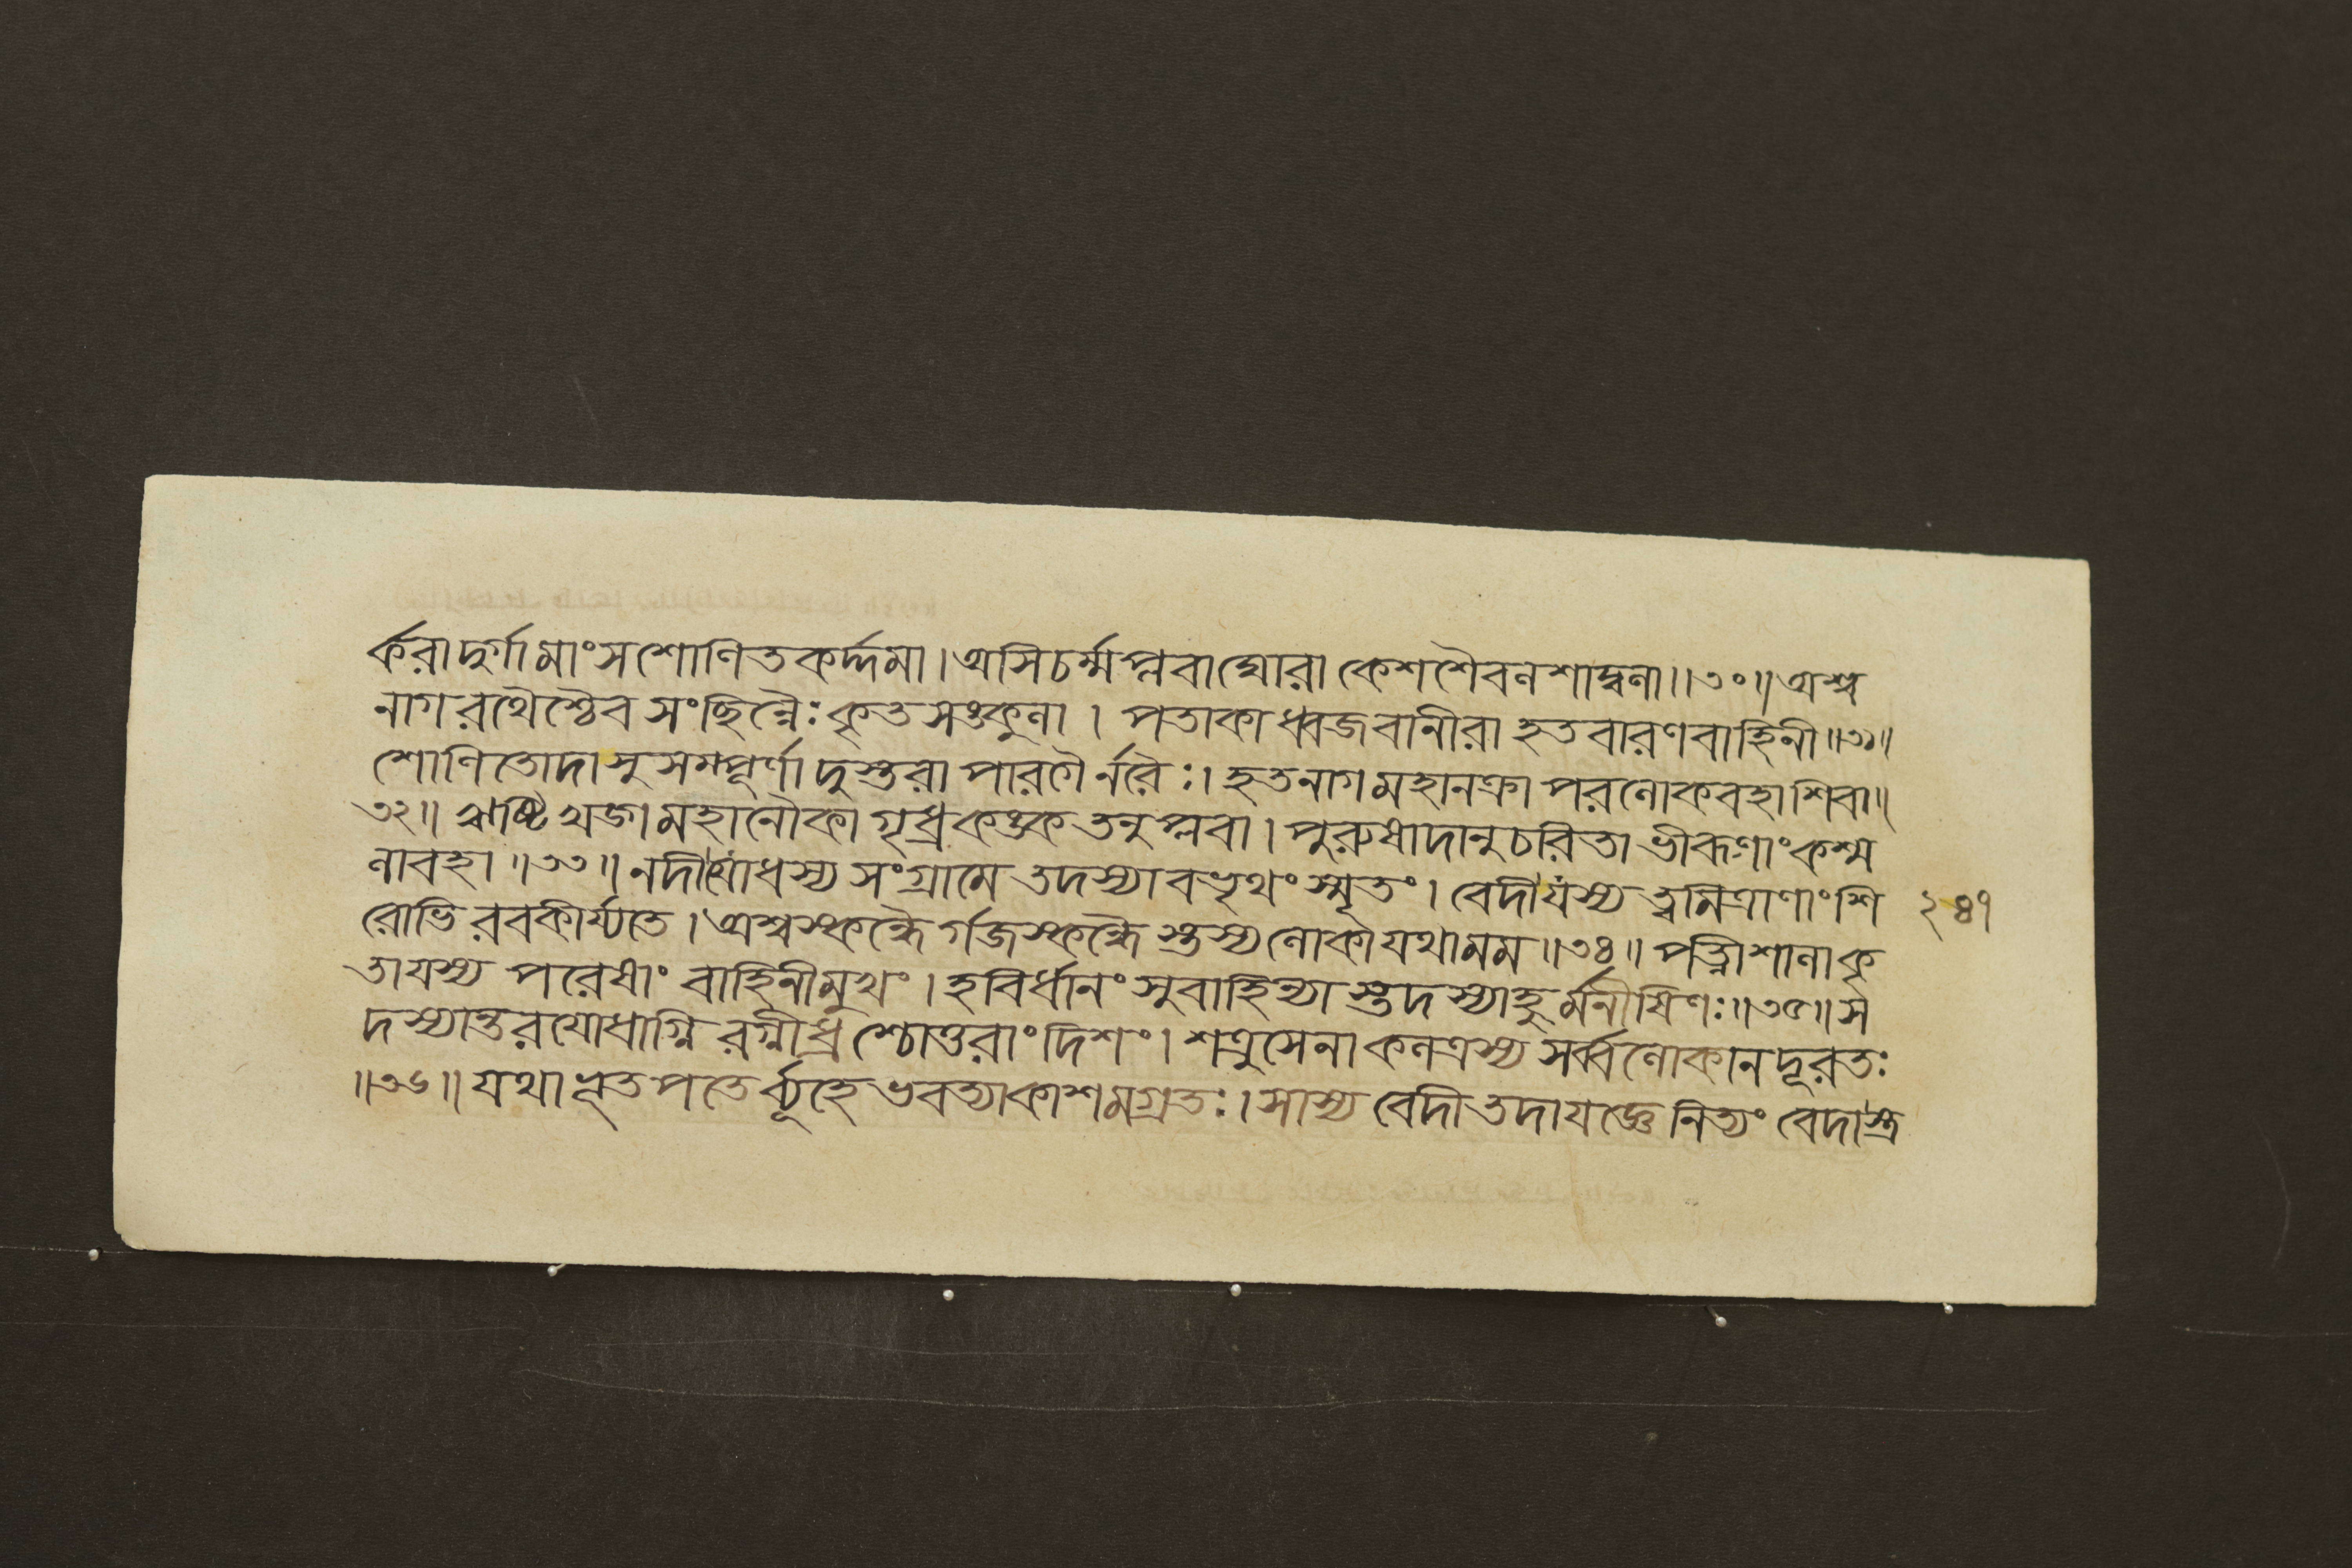 র্করা দুর্গা মাংসশোণিতকর্দ্দমা । অসিচর্ম্মপ্লবা ঘোরা কেশশৈবলশাদ্বলা ॥ ৩০ ॥ অশ্ব
নাগরথৈশ্চৈব সংছিন্নৈঃ কৃতসঙ্কুলা । পতাকাধ্বজবানীরা হতবারণবাহিনী ॥ ৩১ ॥
শোণিতোদা সুসম্পূর্ণা দুস্তরা পারগৈর্নরৈঃ । হতনাগমহানক্রা পরলোকবহাশিবা ॥
৩২ ॥ ঋষ্টিখড়্গমহানৌকা গৃধ্রকঙ্কতনুপ্লবা । পুরুষাদানুচরিতা ভীরূণাং কশ্ম
লাবহা ॥ ৩৩ ॥ নদী যোধস্য সংগ্রামে তদস্যাবভৃথং স্মৃতং । বেদী যস্য ত্বমিত্রাণাং শি
রোভিরবকীর্য্যতে । অশ্বস্কন্ধৈর্গজস্কন্ধৈস্তস্য লোকা যথা মম ॥ ৩৪ ॥ পত্নীশালা কৃ
তা যস্য পরেষাং বাহিনীমুখং । হবির্ধানং সুবাহিন্যাস্তদস্যাহুর্মনীষিণঃ ॥ ৩৫ ॥ স
দস্যান্তরযোধাগ্নিরগ্নীধ্রশ্চোত্তরাং দিশং । শত্রুসেনাকলত্রস্য সর্ব্বলোকানদূরতঃ
॥ ৩৬ ॥ যথা ভূতপতের্ব্যূহে ভবত্যাকাশমগ্রতঃ । সাস্য বেদী তদা যজ্ঞে নিত্যং বেদাস্ত্র
২৪৭